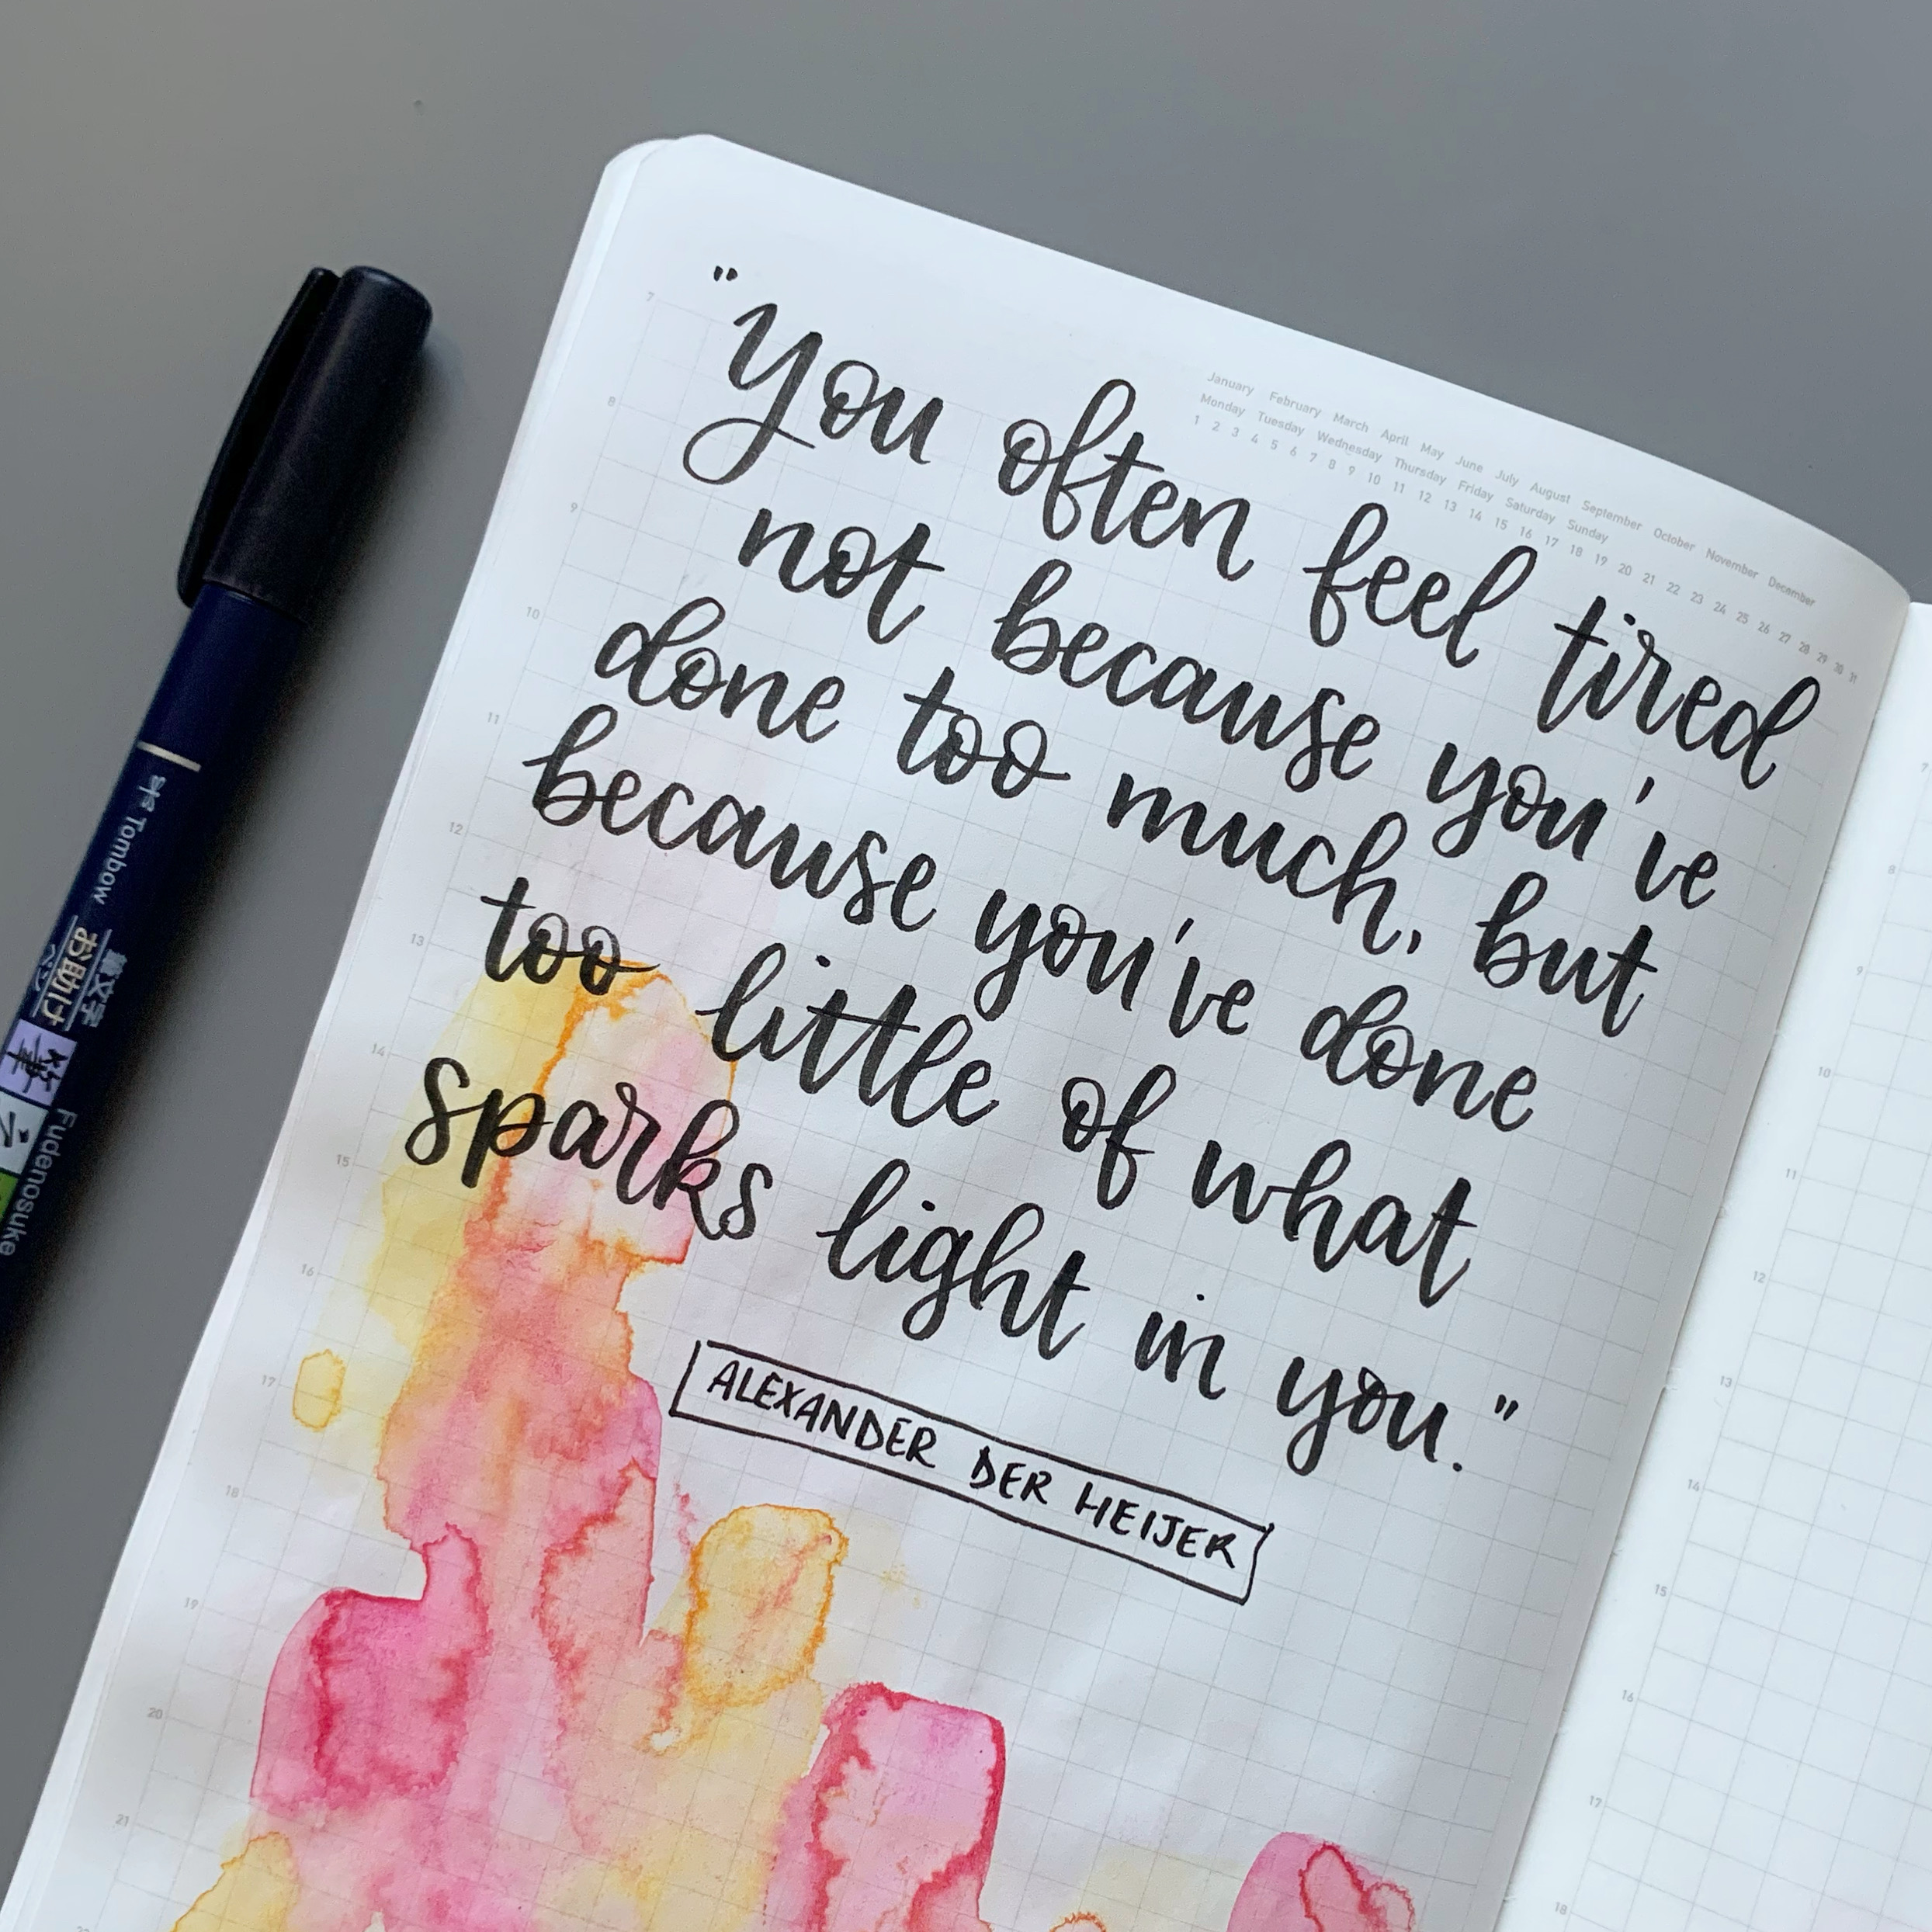 "you often feel tired
not because you've
done too much, but
because you've done
too little of what
sparks light in you."
ALEXANDER DER HEIJER
January February March April May June July August September October November December
Monday Tuesday Wednesday Thursday Friday Saturday Sunday
1 2 3 4 5 6 7 8 9 10 11 12 13 14 15 16 17 18 19 20 21 22 23 24 25 26 27 28 29 30 31
7
8
9
10
11
12
13
14
15
16
17
18
19
20
21
7
8
9
10
11
12
13
14
15
16
17
18
Tombow
筆文字
お助け
ペン
Fudenosuke